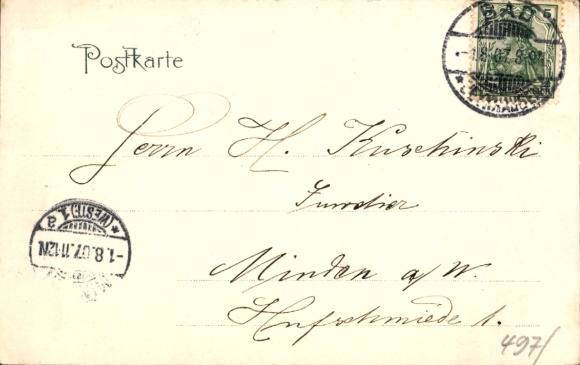 Postkarte
BAD
5
-1.8.07.8-9
Herrn H. Kuschinski
Juwelier
Minden a/W.
Hufschmiede 1.
(WESTF.) 1
-1.8.07.11-12N.
497/